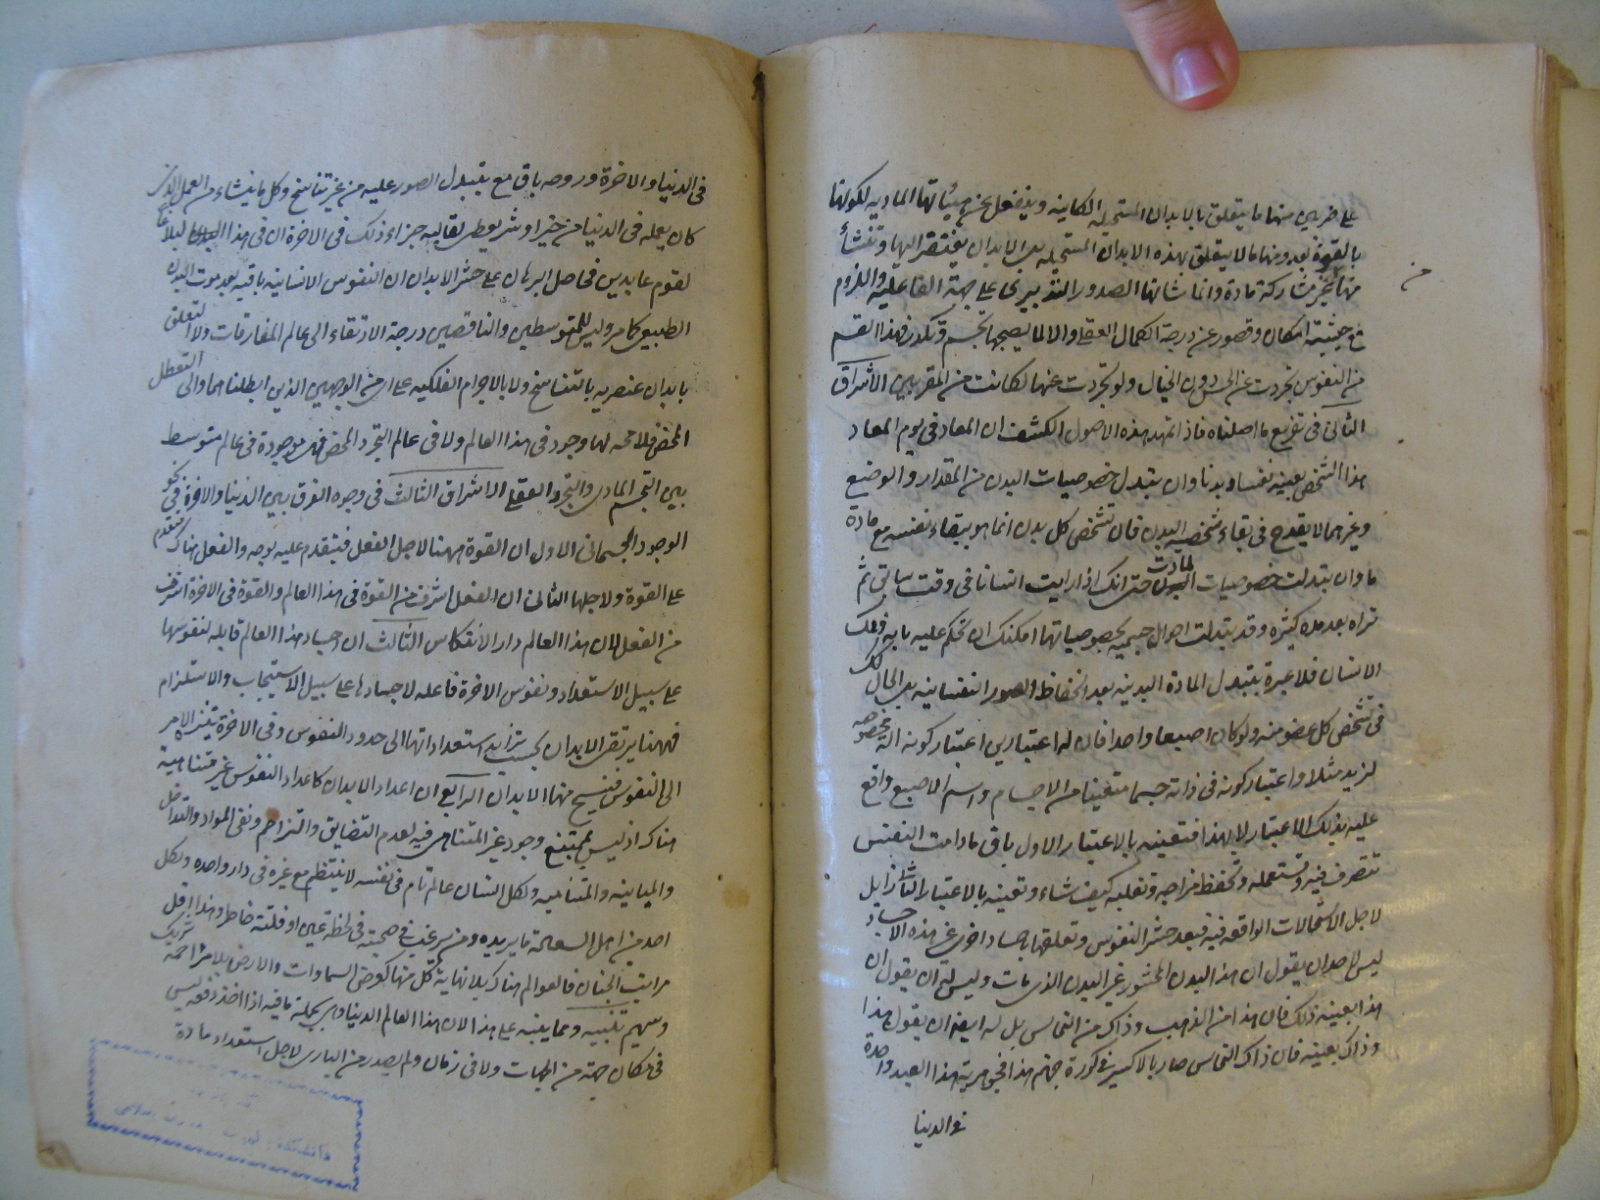 على ضربين منها ما يتعلق بالابدان المستحيلة الكاينة وينفعل عن هيئاتها المادية لكونها
بالقوة بعد ومنها ما لا يتعلق بهذه الابدان المستحيلة بل الابدان يفتقر اليها وتنشأ
منها بغير مشاركة مادة وانما شانها الصدور التدبيرى على جهة الفاعلية واللزوم
مع حيثية امكان وقصور عن درجة الكمال العقلى والا لما يصحبها تجسم وتكدر فهذا القسم
من النفوس تجردت عن الحس دون الخيال ولو تجردت عنها لكانت من المقربين الاشراق
الثانى فى تفريع ما اصلناه فاذ تمهد هذه الاصول انكشف ان المعاد فى يوم المعاد
هذا الشخص بعينه نفسا وبدنا وان تبدل خصوصيات البدن من المقدار والوضع
وغيرهما لا يقدح فى بقاء شخصية البدن فان تشخص كل بدن انما هو ببقاء نفسه مع مادة
ما وان تبدلت خصوصيات المادة حتى انك اذا رايت انسانا فى وقت سابق ثم
تراه بعد مدة كثيرة وقد تبدلت احوال جسمه بخصوصياتها امكنك ان تحكم عليه بانه ذلك
الانسان فلا عبرة بتبدل المادة البدنية بعد انحفاظ الصورة النفسانية بل الحال كذلك
فى تشخص كل عضو منه ولو كان اصبعا واحدا فان له اعتبارين اعتبار كونه الة مخصوصة
لزيد مثلا واعتبار كونه فى ذاته جسما متعينا من الاجسام واسم الاصبع واقع
عليه بذلك الاعتبار لا بهذا فتعينه بالاعتبار الاول باق ما دامت النفس
تتصرف فيه وتستعمله وتحفظ مزاجه وتقلبه كيف شاء وتعينه بالاعتبار الثانى زايل
لاجل الاستحالات الواقعة فيه فبعد حشر النفوس وتعلقها باجساد اخرى غير هذه الاجساد
ليس لاحد ان يقول ان هذا البدن المحشور غير البدن الذى مات وليس له ان يقول ان
هذا بعينه ذلك فان هذا من الذهب وذاك من النحاس بل له ايضا ان يقول هذا
وذاك بعينه فان ذاك النحاس صار بالاكسير فى كورة جهنم هذا فجوهرية هذا العبد واحدة
فى الدنيا
فى الدنيا والاخرة وروحه باق مع تبدل الصور عليه من غير تناسخ وكل ما ينشاء من العمل الذى
كان يعمله فى الدنيا من خير او شر يعطى لقالبه جزاء ذلك فى الاخرة ان فى هذا لبلاغا
لقوم عابدين فحاصل البرهان على حشر الابدان ان النفوس الانسانية باقية بعد موت البدن
الطبيعى كما مر وليس للمتوسطين والناقصين درجة الارتقاء الى عالم المفارقات ولا التعلق
بابدان عنصرية بالتناسخ ولا بالاجرام الفلكية على اى من الوجهين الذين ابطلناهما ولا التعطل
المحض فلا محة لها وجود فى هذا العالم ولا فى عالم التجرد المحض فهى موجودة فى عالم متوسط
بين التجسم المادى والتجرد العقلى الاشراق الثالث فى وجوه الفرق بين الدنيا والاخرة فى نحو
الوجود الجسمانى الاول ان القوة ههنا لاجل الفعل فيتقدم عليه بوجه والفعل هناك متقدم
على القوة ولاجلها الثانى ان الفعل اشرف من القوة فى هذا العالم والقوة فى الاخرة اشرف
من الفعل لان هذا العالم دار الانتكاس الثالث ان اجساد هذا العالم قابلة لنفوسها
على سبيل الاستعداد ونفوس الاخرة فاعلة لاجسادها على سبيل الاستيجاب والاستلزام
فههنا يرتقى الابدان بحسب تزايد استعداداتها الى حدود النفوس وفى الاخرة يتنزل الامر
الى النفوس فينسخ منها الابدان الرابع ان اعداد الابدان كاعداد النفوس غير متناهية
هناك اذ ليس بممتنع وجود غير المتناهى فيه لعدم التضايق والتزاحم ونفى المواد والتداخل
والمباينة والمتناهية ولكل انسان عالم تام فى نفسه لا ينتظم مع غيره فى دار واحدة ولكل
احد من اهل السعادة ما يريده ومن يرغب فى صحبته فى لحظة عين او فلتة خاطر وهذا اقل
مراتب الجنان فالعوالم هناك بلا نهاية كل منها كعرض السماوات والارض بلا مزاحمة شريك
وسهيم تنبيه وعما يبنه على هذا الان هذا العالم الدنياوى بجملة ما فيه اذا اخذ دفعة ليس
فى مكان جهة من الجهات ولا فى زمان ولم يصدر من البارى لاجل استعداد مادة